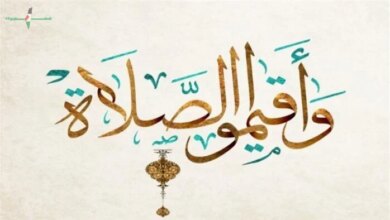 وَأَقِيمُوا الصَّلَاةَ